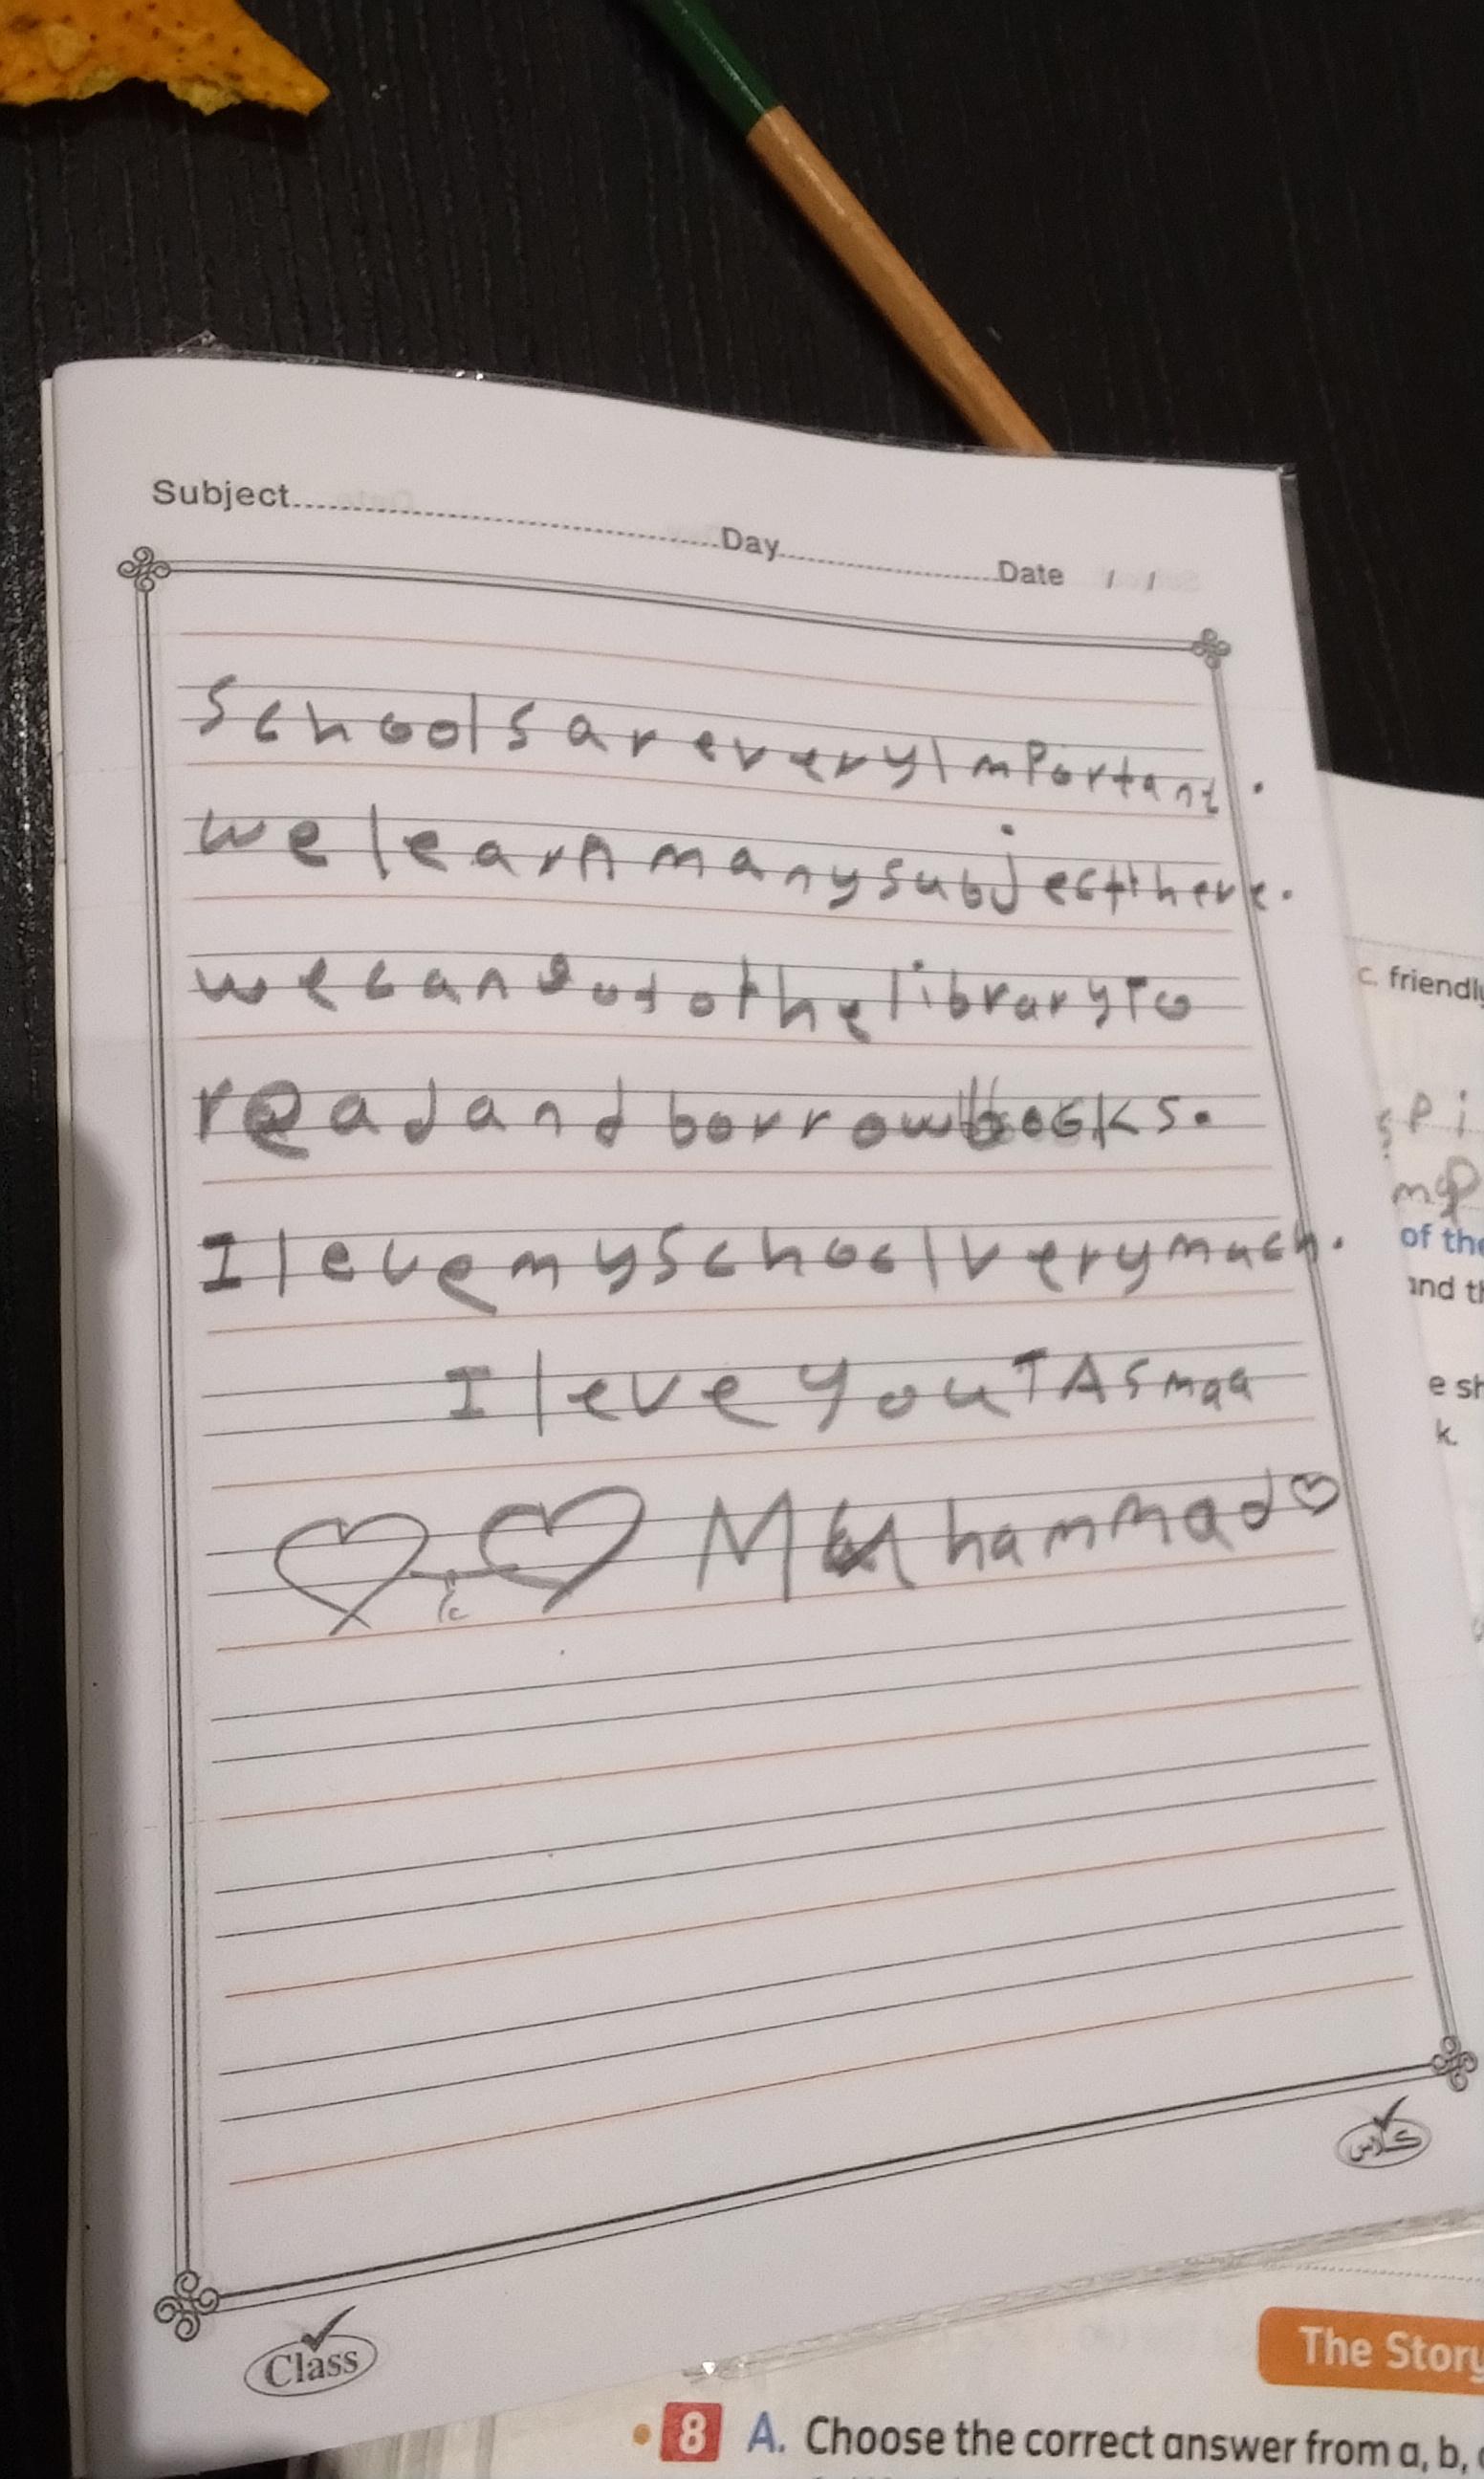 Subject
Day
Date / /
Schools are very important.
we learn many subject there.
we can out to the library To
read and borrow books.
I leve my School very much.
I leve you T Asmaa
Muhammad
Class
كلاس
c. friendly
of the
and th
e sh
k.
The Story
8 A. Choose the correct answer from a, b,